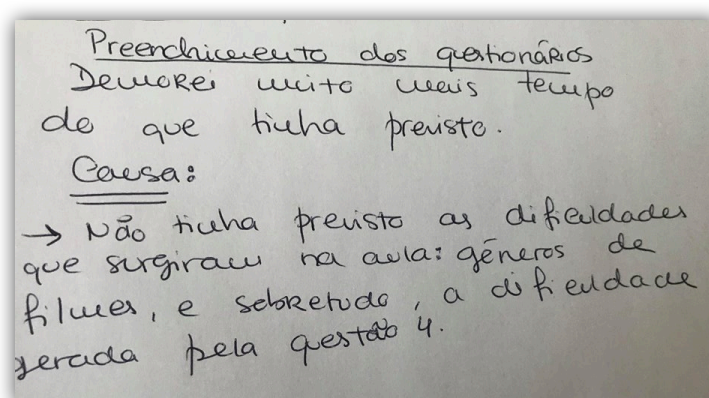 Preenchimento dos questionários
Demorei muito mais tempo
do que tinha previsto.
Causa:
→ Não tinha previsto as dificuldades
que surgiram na aula: géneros de
filmes, e sobretudo, a dificuldade
gerada pela questão 4.